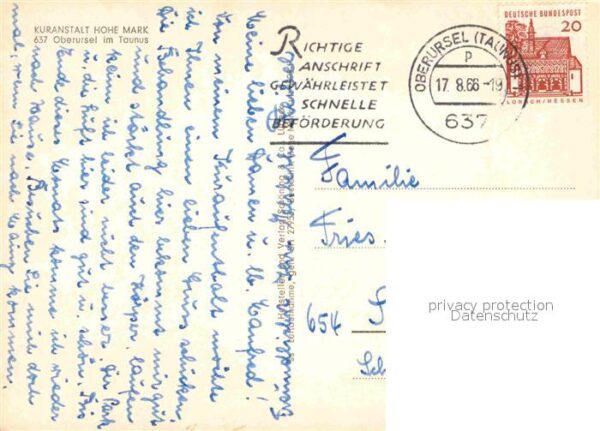 KURANSTALT HOHE MARK
637 Oberursel im Taunus
RICHTIGE
ANSCHRIFT
GEWÄHRLEISTET
SCHNELLE
BEFÖRDERUNG
OBERURSEL (TAUNUS)
p
17.8.66-19
637
DEUTSCHE BUNDESPOST
20
LORSCH/HESSEN
Meine lieben Damen u. lb. Manfred!
Aus meinem Kuraufenthalt möchte
ich Ihnen einen lieben Gruss schicken
Die Behandlung hier bekommt mir gut
und stärkt auch den Körper, laufen
kann ich leider nicht besser. Der Park
u. die Luft hier sind gut u. schön. Bis
Ende dieses Monats komme ich wieder
nach Hause. Besuchen Sie mich doch
mal, wenn Sie nach Mainz kommen.
Familie
Fries
654
Sch
privacy protection
Datenschutz